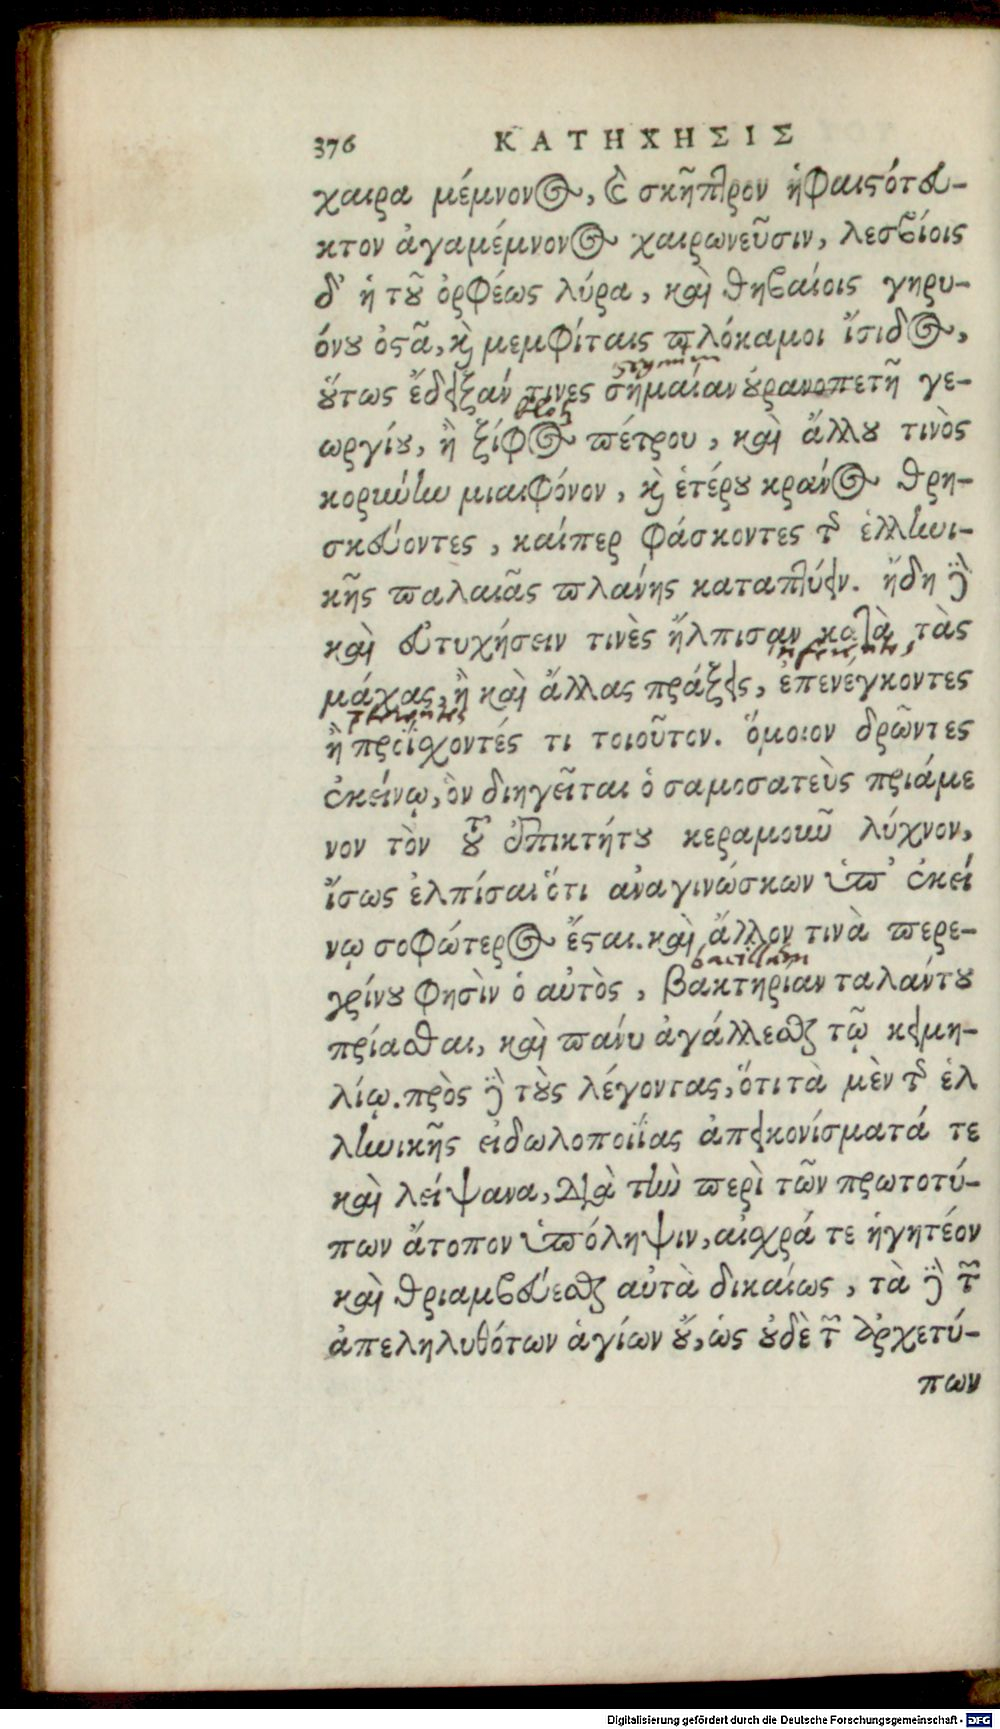 376 ΚΑΤΗΧΗΣΙΣ
χαιρα μέμνονος, καὶ σκῆπτρον ἡφαιστότευ-
κτον ἀγαμέμνονος χαιρωνεῦσιν, λεσβίοις
δ' ἡ τοῦ ὀρφέως λύρα, καὶ θηβαίοις γηρυ-
όνου ὀστᾶ, καὶ μεμφίταις πλόκαμοι ἴσιδος,
οὕτως ἔδειξάν τινες σημαίαν οὐρανοπετῆ γε-
ωργίου, ἢ ξίφος πέτρου, καὶ ἄλλου τινὸς
κορύνην μιαιφόνον, καὶ ἑτέρου κράνος θρη-
σκεύοντες, καίπερ φάσκοντες τῆς ἑλληνι-
κῆς παλαιᾶς πλάνης καταπτύειν. ἤδη δὲ
καὶ εὐτυχήσειν τινὲς ἤλπισαν κατὰ τὰς
μάχας, ἢ καὶ ἄλλας πράξεις, ἐπενέγκοντες
ἢ προΐσχοντές τι τοιοῦτον. ὅμοιον δρῶντες
ἐκείνῳ, ὃν διηγεῖται ὁ σαμοσατεὺς πριάμε
νον τὸν τοῦ ἐπικτήτου κεραμοιοῦ λύχνον,
ἴσως ἐλπίσαι ὅτι ἀναγινώσκων ὑπ' ἐκεί
νῳ σοφώτερος ἔσται. καὶ ἄλλον τινὰ περε-
bacillum
γρίνου φησὶν ὁ αὐτὸς, βακτηρίαν ταλάντου
πρίασθαι, καὶ πάνυ ἀγάλλεσθαι τῷ κειμη-
λίῳ. πρὸς δὲ τοὺς λέγοντας, ὅτι τὰ μὲν τῆς ἑλ
ληνικῆς εἰδωλοποιΐας ἀπεικονίσματά τε
καὶ λείψανα, διὰ τὴν περὶ τῶν πρωτοτύ-
πων ἄτοπον ὑπόληψιν, αἰσχρά τε ἡγητέον
καὶ θριαμβεύεσθαι αὐτὰ δικαίως, τὰ δὲ τῶν
ἀπεληλυθότων ἁγίων οὔ, ὡς οὐδὲ τῶν ἀρχετύ-
πων
Digitalisierung gefördert durch die Deutsche Forschungsgemeinschaft - DFG